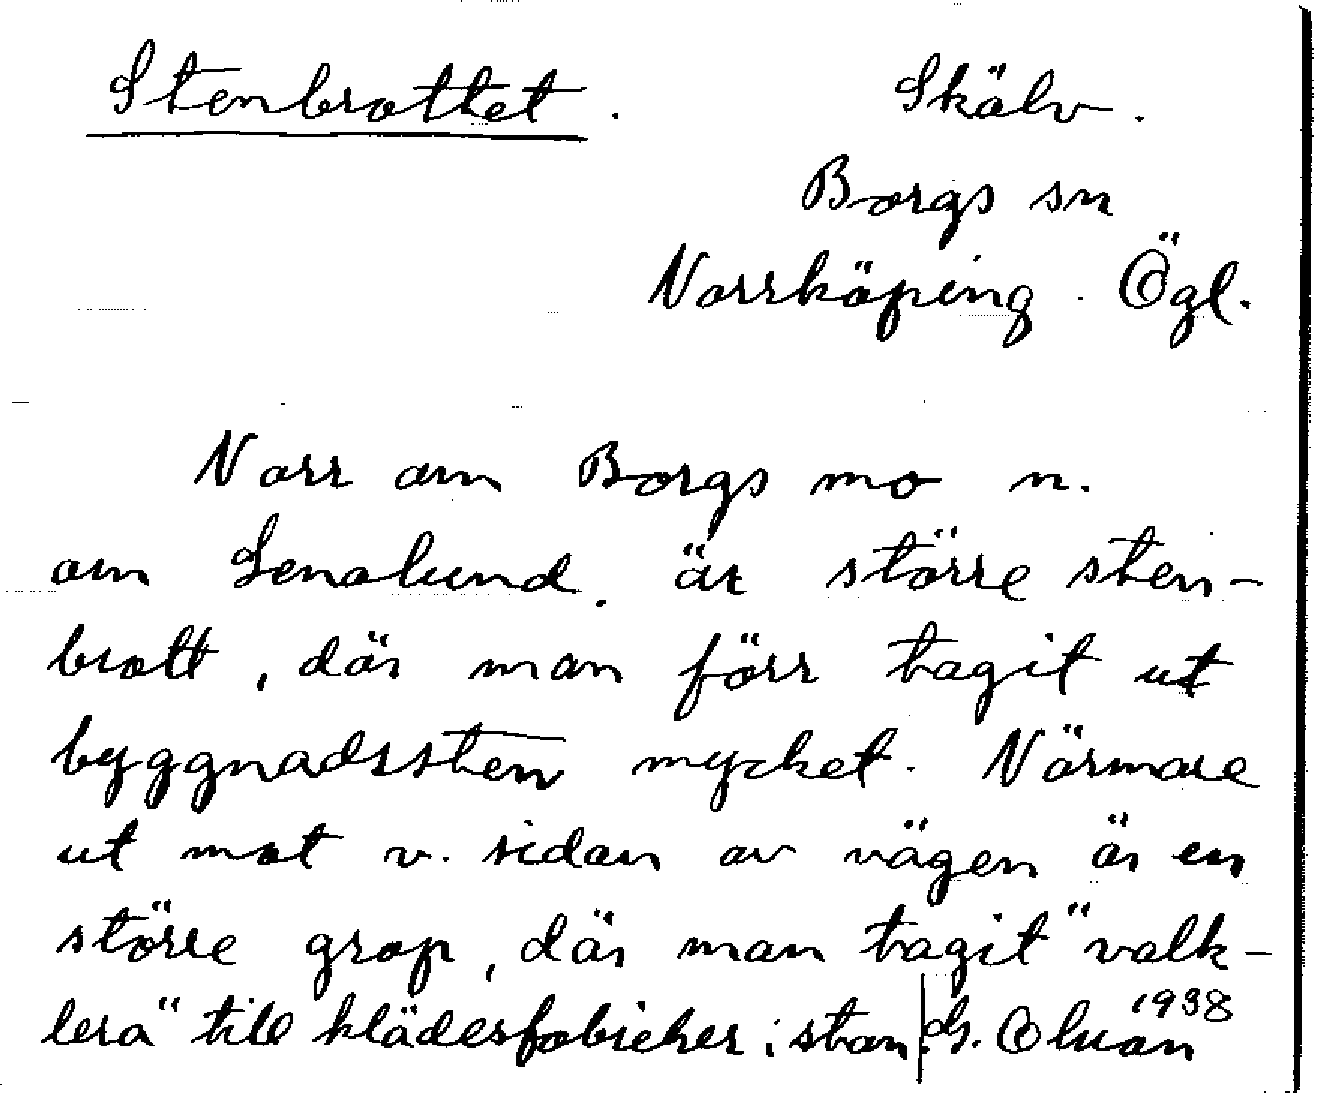 Stenbrottet. Skälv.
Borgs sn
Norrköping. Ögl.
Norr om Borgs mo n.
om Lenalund. är större sten-
brott, där man förr tagit ut
byggnadssten mycket. Närmare
ut mot v. sidan av vägen är en
större grop, där man tagit "valk-
lera" till klädesfabriker i stan
1938